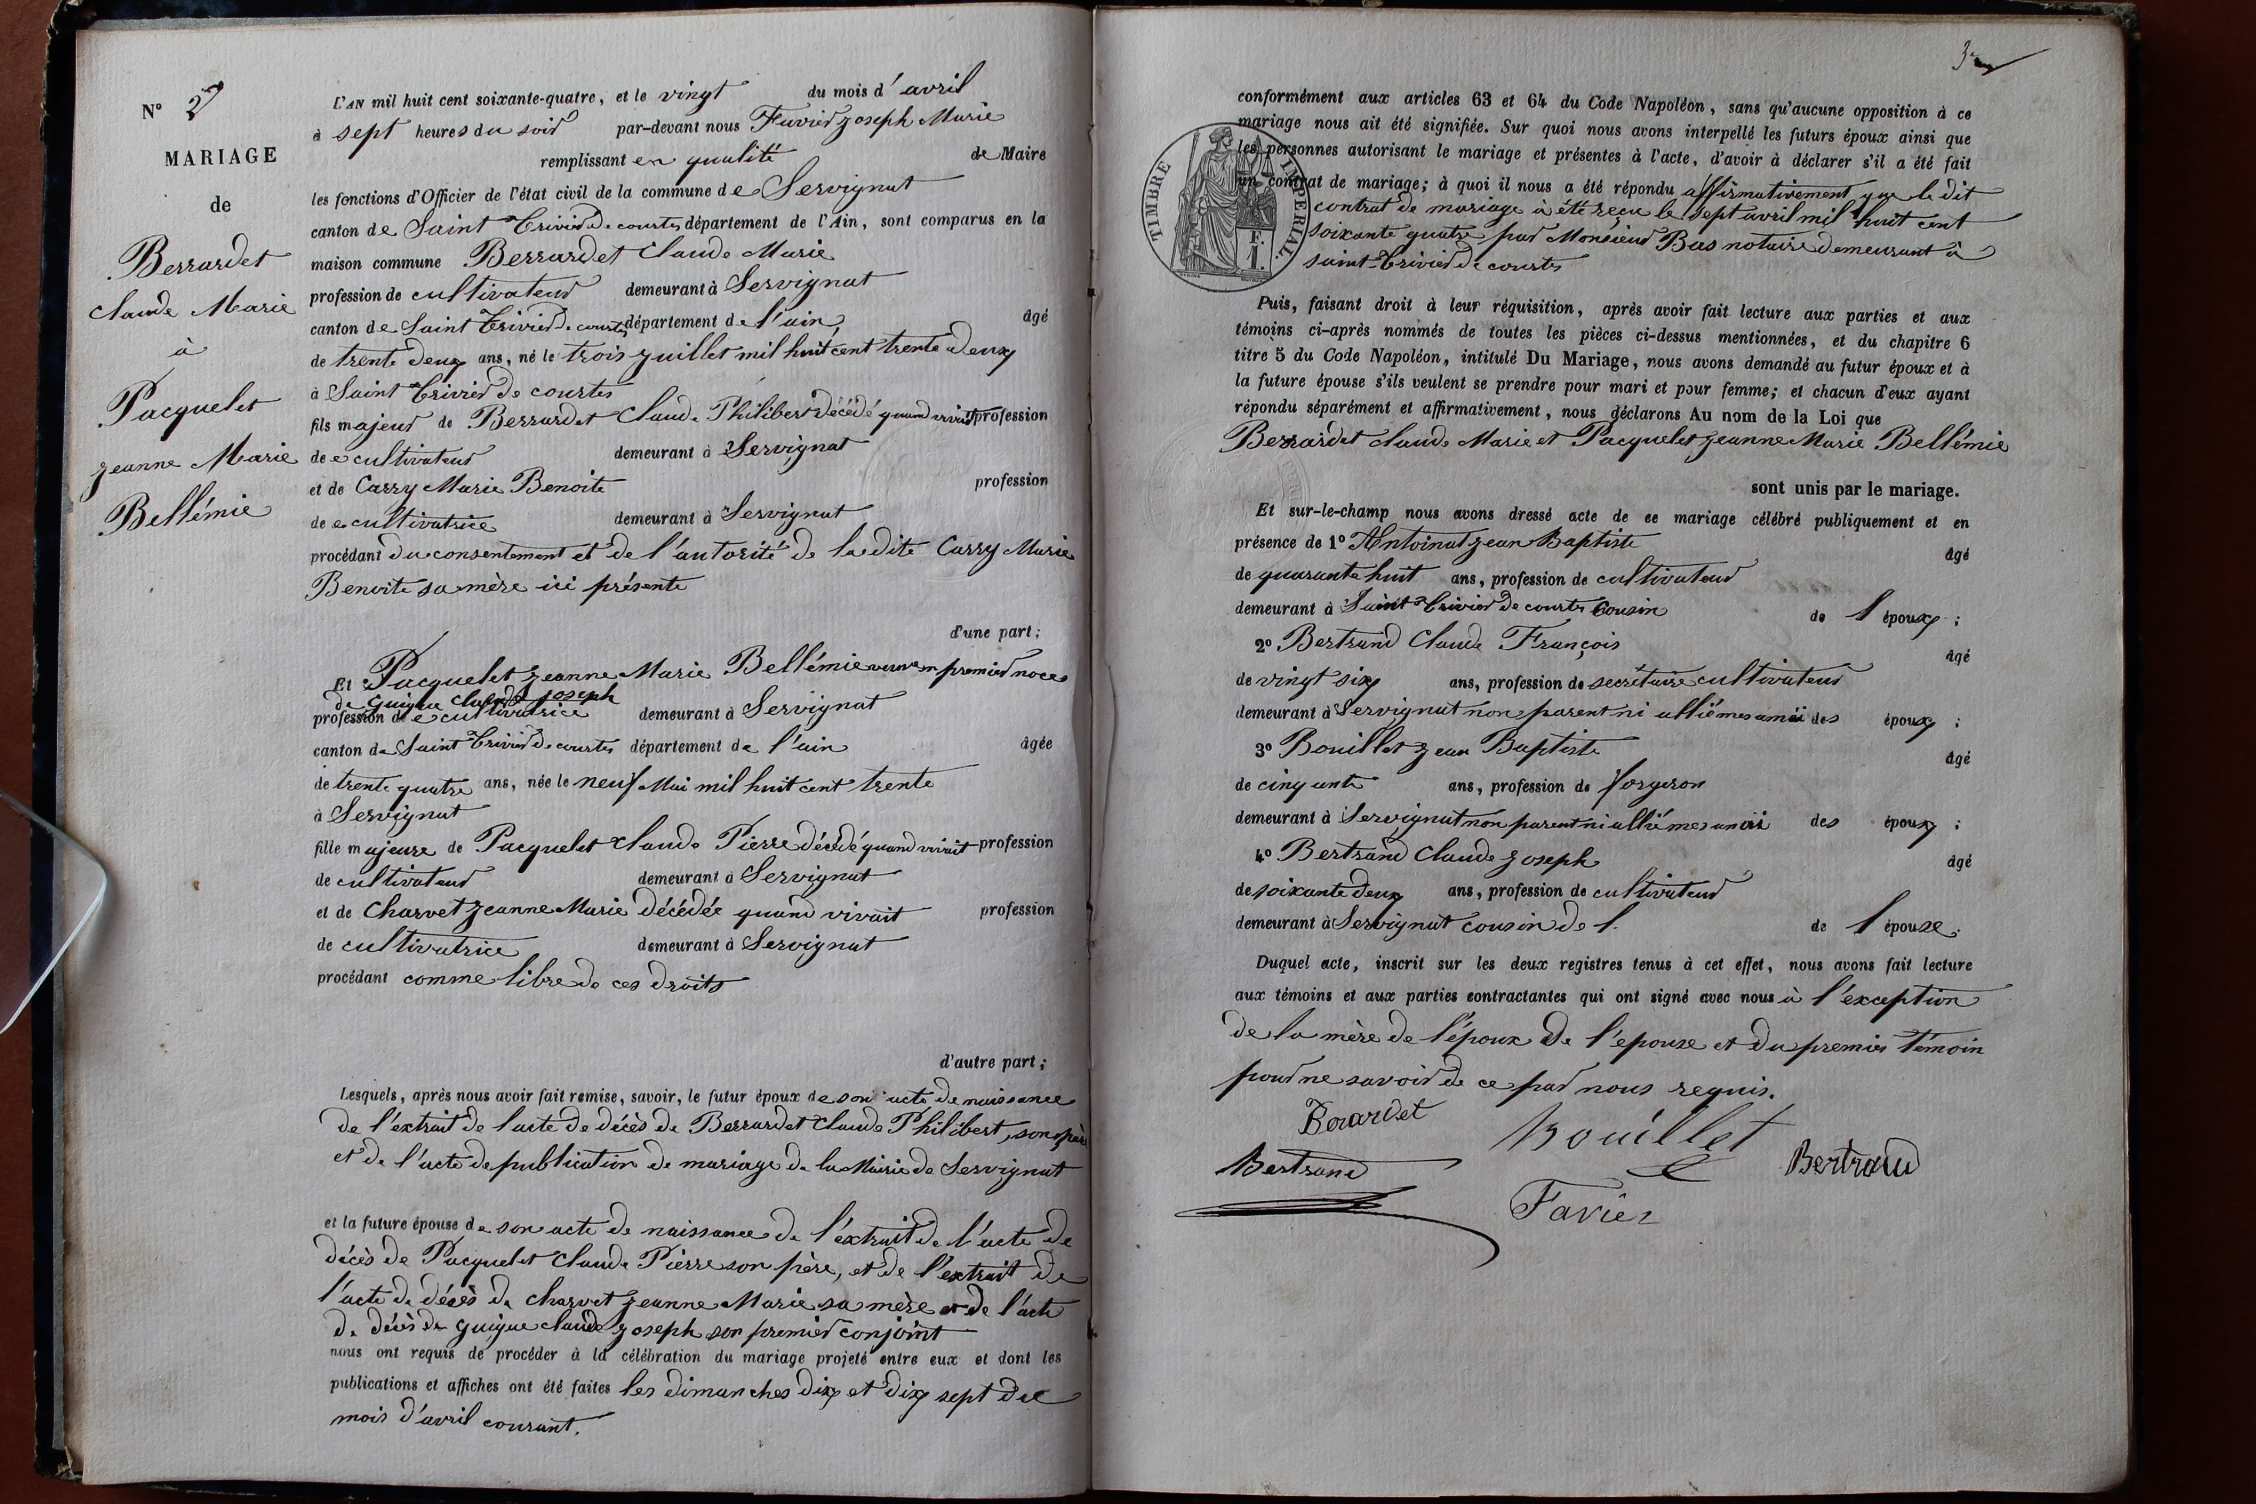 N° 2
MARIAGE
de
Berrardet
Claude Marie
à
Pacquelet
Jeanne Marie
Bellémie
L'AN mil huit cent soixante-quatre, et le vingt du mois d'avril
à sept heures du soir par-devant nous Favier Joseph Marie
remplissant en qualité de Maire
les fonctions d'Officier de l'état civil de la commune de Servignat
canton de Saint Trivier de courtes département de l'Ain, sont comparus en la
maison commune Berrardet Claude Marie
profession de cultivateur demeurant à Servignat
canton de Saint Trivier de courtes département de l'ain âgé
de trente deux ans, né le trois juillet mil huit cent trente deux
à Saint Trivier de courtes
fils majeur de Berrardet Claude Philibert décédé quand vivait profession
de cultivateur demeurant à Servignat
et de Carry Marie Benoite profession
de cultivatrice demeurant à Servignat
procédant du consentement et de l'autorité de la dite Carry Marie
Benoite sa mère ici présente
d'une part;
Et Pacquelet Jeanne Marie Bellémie veuve en premier noces
de Guigue Claude Joseph
profession de cultivatrice demeurant à Servignat
canton de Saint Trivier de courtes département de l'ain âgée
de trente quatre ans, née le neuf Mai mil huit cent trente
à Servignat
fille majeure de Pacquelet Claude Pierre décédé quand vivait profession
de cultivateur demeurant à Servignat
et de Charvet Jeanne Marie décédée quand vivait profession
de cultivatrice demeurant à Servignat
procédant comme libre de ces droits
d'autre part;
Lesquels, après nous avoir fait remise, savoir, le futur époux de son acte de naissance
de l'extrait de l'acte de décès de Berrardet Claude Philibert, son père
et de l'acte de publication de mariage de la Mairie de Servignat
et la future épouse de son acte de naissance de l'extrait de l'acte de
décès de Pacquelet Claude Pierre son père, et de l'extrait de
l'acte de décès de Charvet Jeanne Marie sa mère et de l'acte
de décès de Guigue Claude Joseph son premier conjoint
nous ont requis de procéder à la célébration du mariage projeté entre eux et dont les
publications et affiches ont été faites les dimanches dix et dix sept du
mois d'avril courant.
3
conformément aux articles 63 et 64 du Code Napoléon, sans qu'aucune opposition à ce
mariage nous ait été signifiée. Sur quoi nous avons interpellé les futurs époux ainsi que
les personnes autorisant le mariage et présentes à l'acte, d'avoir à déclarer s'il a été fait
un contrat de mariage; à quoi il nous a été répondu affirmativement que le dit
contrat de mariage à été reçu le sept avril mil huit cent
soixante quatre par Monsieur Bas notaire demeurant à
saint-Trivier de courtes
TIMBRE IMPERIAL.
F.
1.
Puis, faisant droit à leur réquisition, après avoir fait lecture aux parties et aux
témoins ci-après nommés de toutes les pièces ci-dessus mentionnées, et du chapitre 6
titre 5 du Code Napoléon, intitulé Du Mariage, nous avons demandé au futur époux et à
la future épouse s'ils veulent se prendre pour mari et pour femme; et chacun d'eux ayant
répondu séparément et affirmativement, nous déclarons Au nom de la Loi que
Berrardet Claude Marie et Pacquelet Jeanne Marie Bellémie
sont unis par le mariage.
Et sur-le-champ nous avons dressé acte de ce mariage célébré publiquement et en
présence de 1° Antoinat Jean Baptiste âgé
de quarante huit ans, profession de cultivateur
demeurant à Saint Trivier de courtes Cousin de l'époux;
2° Bertrand Claude François âgé
de vingt six ans, profession de secrétaire cultivateur
demeurant à Servignat non parent ni allié mes amis des époux;
3° Bouillet Jean Baptiste âgé
de cinqante ans, profession de forgeron
demeurant à Servignat non parent ni allié mes amis des époux;
4° Bertrand Claude Joseph âgé
de soixante deux ans, profession de cultivateur
demeurant à Servignat cousin de l. de l'épouse.
Duquel acte, inscrit sur les deux registres tenus à cet effet, nous avons fait lecture
aux témoins et aux parties contractantes qui ont signé avec nous à l'exception
de la mère de l'époux de l'epouse et du premier témoin
pour ne savoir de ce par nous requis.
Berardet
Bouillet
Bertrand
Bertrand
Favier